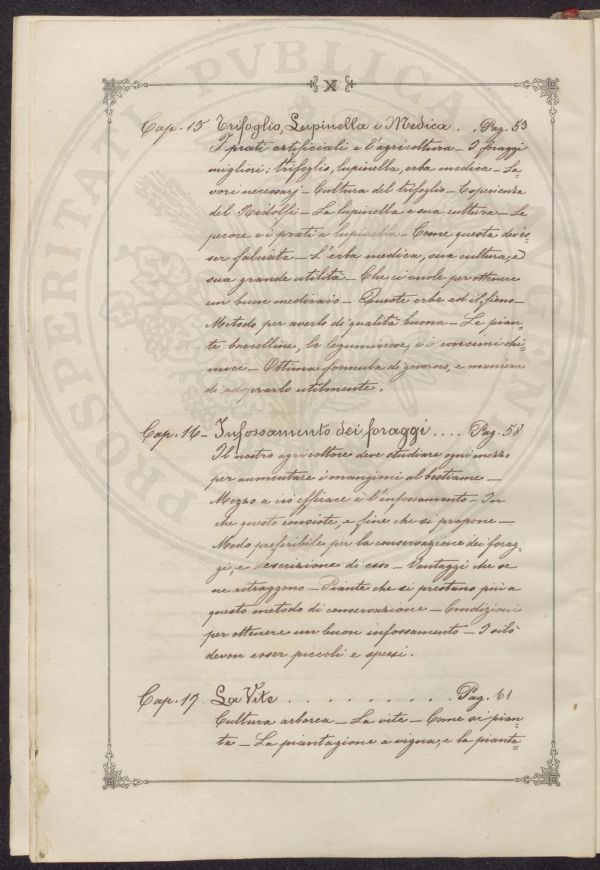 X
Cap. 15 Trifoglio, Lupinella e Medica . . Pag. 53
I prati artificiali e l'agricoltura – I foraggi
migliori: trifoglio, lupinella, erba medica – La=
vori necessarj – Cultura del trifoglio – Esperienza
del Ridolfi – La lupinella e sua cultura – Le
pecore e i prati a lupinella – Come questa dev'es=
ser falciata – L'erba medica, sua cultura, e
sua grande utilità – Che ci vuole per ottenere
un buon medicaio – Queste erbe ed il fieno –
Metodo per averlo di qualità buona – Le pian=
te baccelline, le leguminose, e i concimi chi=
mici – Ottima formula di governo, e maniera
di adoprarlo utilmente.
Cap. 16 – Infossamento dei foraggi . . . . Pag. 58
Il nostro agricoltore deve studiare ogni mezzo
per aumentare i mangimi al bestiame –
Mezzo a ciò efficace è l'infossamento – In
che questo consiste, e fine che si propone –
Modo preferibile per la conservazione dei forag=
gi, e descrizione di esso – Vantaggi che se
ne ritraggono – Piante che si prestano più a
questo metodo di conservazione – Condizioni
per ottenere un buon infossamento – I silò
devon esser piccoli e spessi.
Cap. 17 La Vite . . . . . . . . . Pag. 61
Cultura arborea – La vite – Come si pian=
ta – La piantagione a vigna, e la pianta=
PROSPERITATI PVBLICAE AVGENDAE